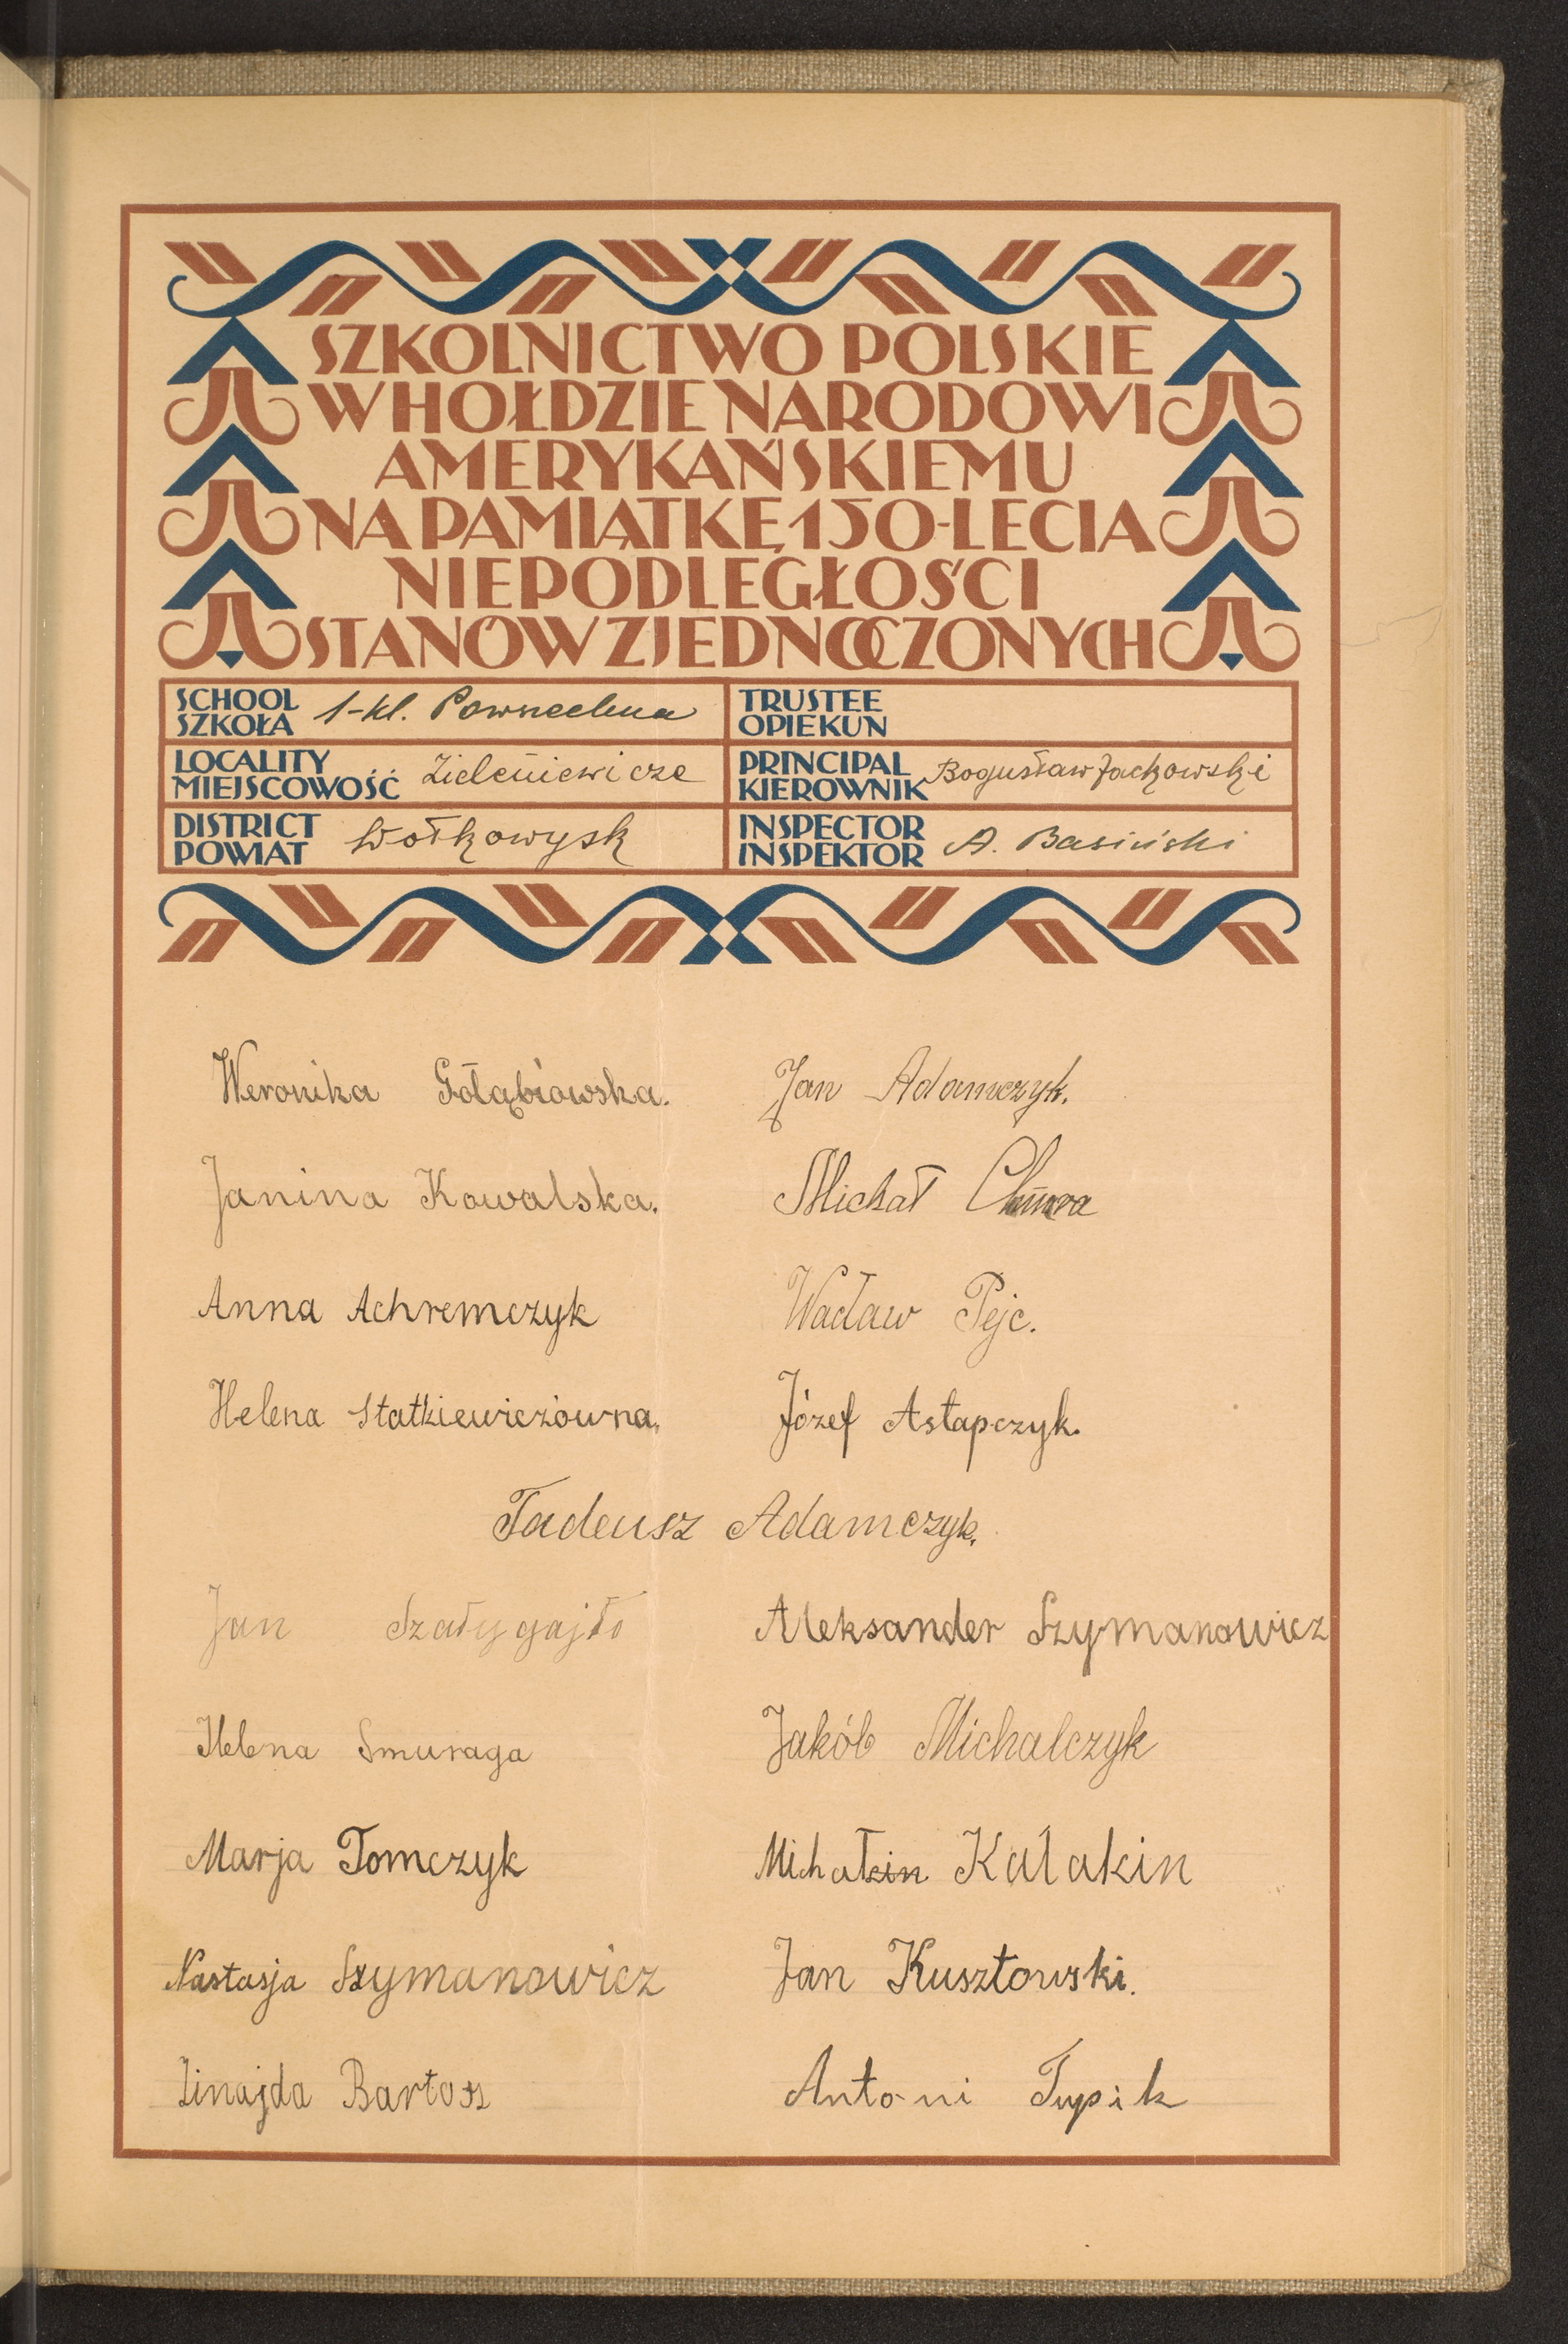 SZKOLNICTWO POLSKIE
W HOŁDZIE NARODOWI
AMERYKAŃSKIEMU
NA PAMIĄTKĘ 150-LECIA
NIEPODLEGŁOŚCI
STANÓW ZJEDNOCZONYCH
SCHOOL
SZKOŁA 1-kl. Powszechna
TRUSTEE
OPIEKUN
LOCALITY
MIEJSCOWOŚĆ Zieleniewicze
PRINCIPAL
KIEROWNIK Bogusław Jackowski
DISTRICT
POWIAT Wołkowysk
INSPECTOR
INSPEKTOR A. Basiński
Weronika Gołąbiowska.
Jan Adamczyk.
Janina Kowalska.
Michał
Anna Achremczyk
Wacław Pejc.
Helena Statkiewiczówna.
Józef Astapczyk.
Tadeusz Adamczyk.
Jan Szałygajło
Aleksander Szymanowicz
Helena Smuraga
Jakób Michalczyk
Marja Tomczyk
Michał Kałakin
Nastasja Szymanowicz
Jan Kusztowski.
Zinajda Bartosz
Antoni Typik